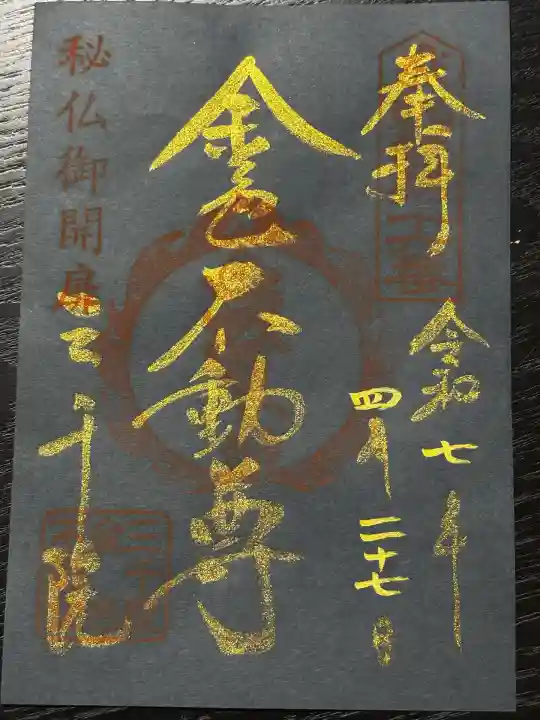 奉拝
令和七年
四月二十七日
金色不動尊
秘仏御開扉
三千院